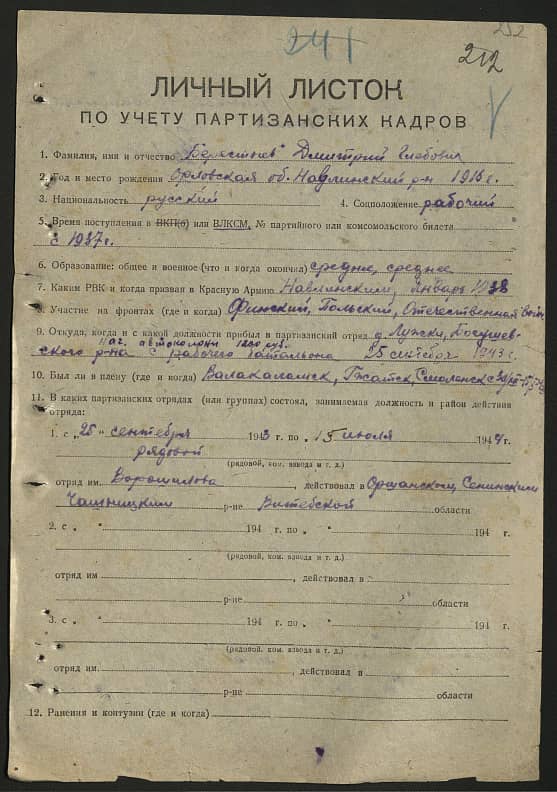 212
ЛИЧНЫЙ ЛИСТОК
ПО УЧЕТУ ПАРТИЗАНСКИХ КАДРОВ
1. Фамилия, имя и отчество Дмитрий Глебович
2. Год и место рождения Орловская об. Навлинский р-н 1918 г.
3. Национальность русский 4. Соцположение рабочий
5. Время поступления в ВКП(б) или ВЛКСМ, № партийного или комсомольского билета
с 1937 г.
6. Образование: общее и военное (что и когда окончил) среднее, среднее
7. Каким РВК и когда призван в Красную Армию Навлинским, январь 1938
8. Участие на фронтах (где и когда) Финский, Польский, Отечественной
9. Откуда, когда и с какой должности прибыл в партизанский отряд д. Лужски,
р-на с рабочего батальона 25 сентября 1943 г.
10. Был ли в плену (где и когда) Гжатск, Смоленск
11. В каких партизанских отрядах (или группах) состоял, занимаемая должность и район действия
отряда:
1. с „25" сентября 1943 г. по „15 июля 1944 г.
рядовой
(рядовой, ком. взвода и т. д.)
отряд им Ворошилова, действовал в Оршанском, Сенинским
Чашницким р-не Витебской области
2. с „ " 194 г. по „ " 194 г.
(рядовой, ком. взвода и т. д.)
отряд им , действовал в
р-не области
3. с „ " 194 г. по „ " 194 г.
(рядовой, ком. взвода и т. д.)
отряд им. , действовал в
р-не области
12. Ранения и контузии (где и когда)